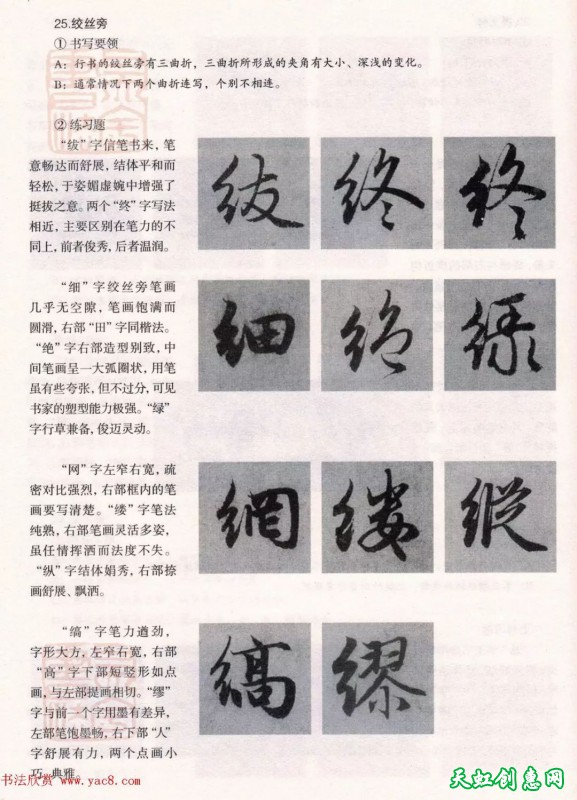 25.绞丝旁
① 书写要领
A：行书的绞丝旁有三曲折，三曲折所形成的夹角有大小、深浅的变化。
B：通常情况下两个曲折连写，个别不相连。
② 练习题
“绂”字信笔书来，笔
意畅达而舒展，结体平和而
轻松，于姿媚虚婉中增强了
挺拔之意。两个“终”字写法
相近，主要区别在笔力的不
同上，前者俊秀，后者温润。
紱 終 終
“细”字绞丝旁笔画
几乎无空隙，笔画饱满而
圆滑，右部“田”字同楷法。
“绝”字右部造型别致，中
间笔画呈一大弧圈状，用笔
虽有些夸张，但不过分，可见
书家的塑型能力极强。“绿”
字行草兼备，俊迈灵动。
細 絶 緑
“网”字左窄右宽，疏
密对比强烈，右部框内的笔
画要写清楚。“缕”字笔法
纯熟，右部笔画灵活多姿，
虽任情挥洒而法度不失。
“纵”字结体娟秀，右部捺
画舒展、飘洒。
網 縷 縱
“缟”字笔力遒劲，
字形大方，左窄右宽，右部
“高”字下部短竖形如点
画，与左部提画相切。“缪”
字与前一个字用墨有差异，
左部笔饱墨畅，右下部“人”
字舒展有力，两个点画小
巧、典雅。
縞 繆
书法欣赏 www.yac8.com
天虹创意网